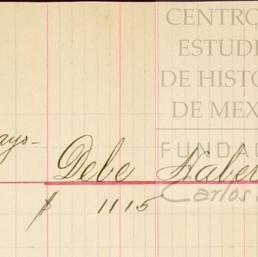 CENTRO
ESTUDI
DE HISTO
DE MEX
FUNDAC
Carlos S
ayo-
Debe Haber
$ 1115